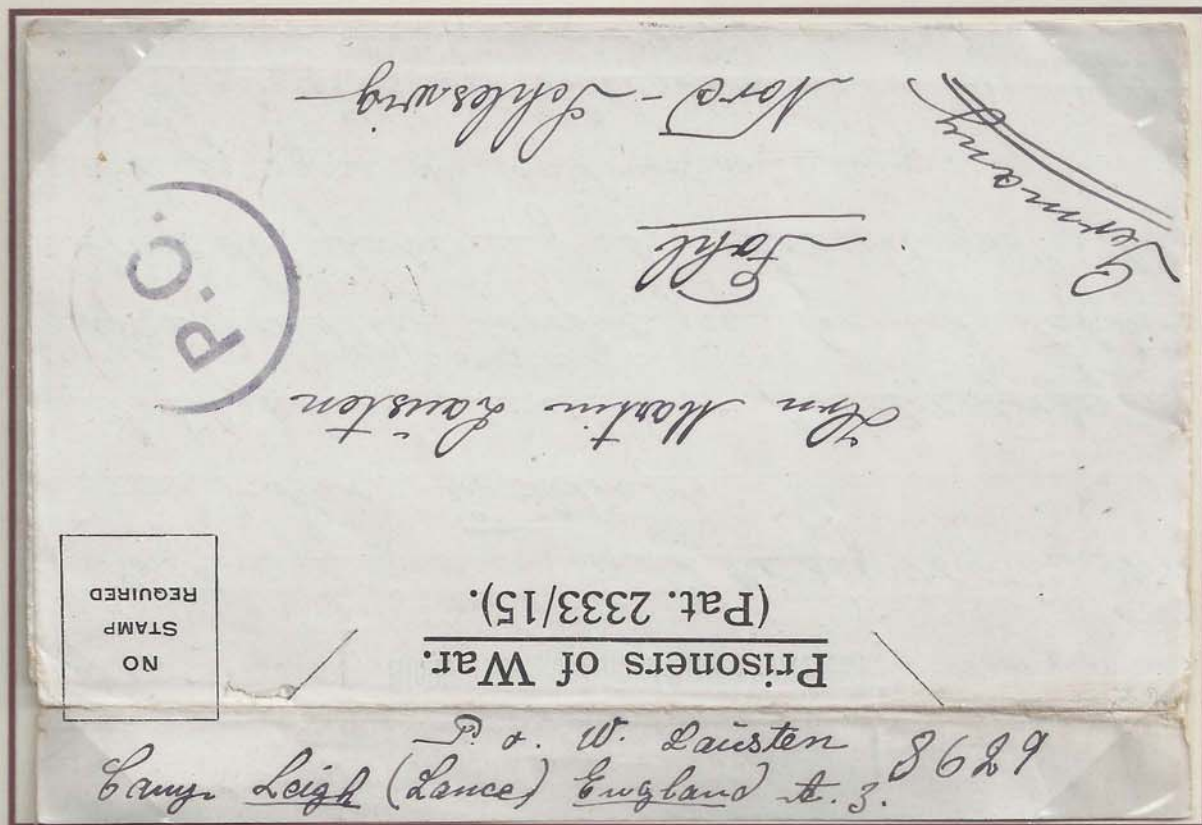 Prisoners of War.
(Pat. 2333/15).
NO
STAMP
REQUIRED
Hrn Martin Laüsten
P.C.
Fohl
Nord-Schleswig
Germany
P. o. W. Laüsten 8629
Camp Leigh (Lance) England A. 3.